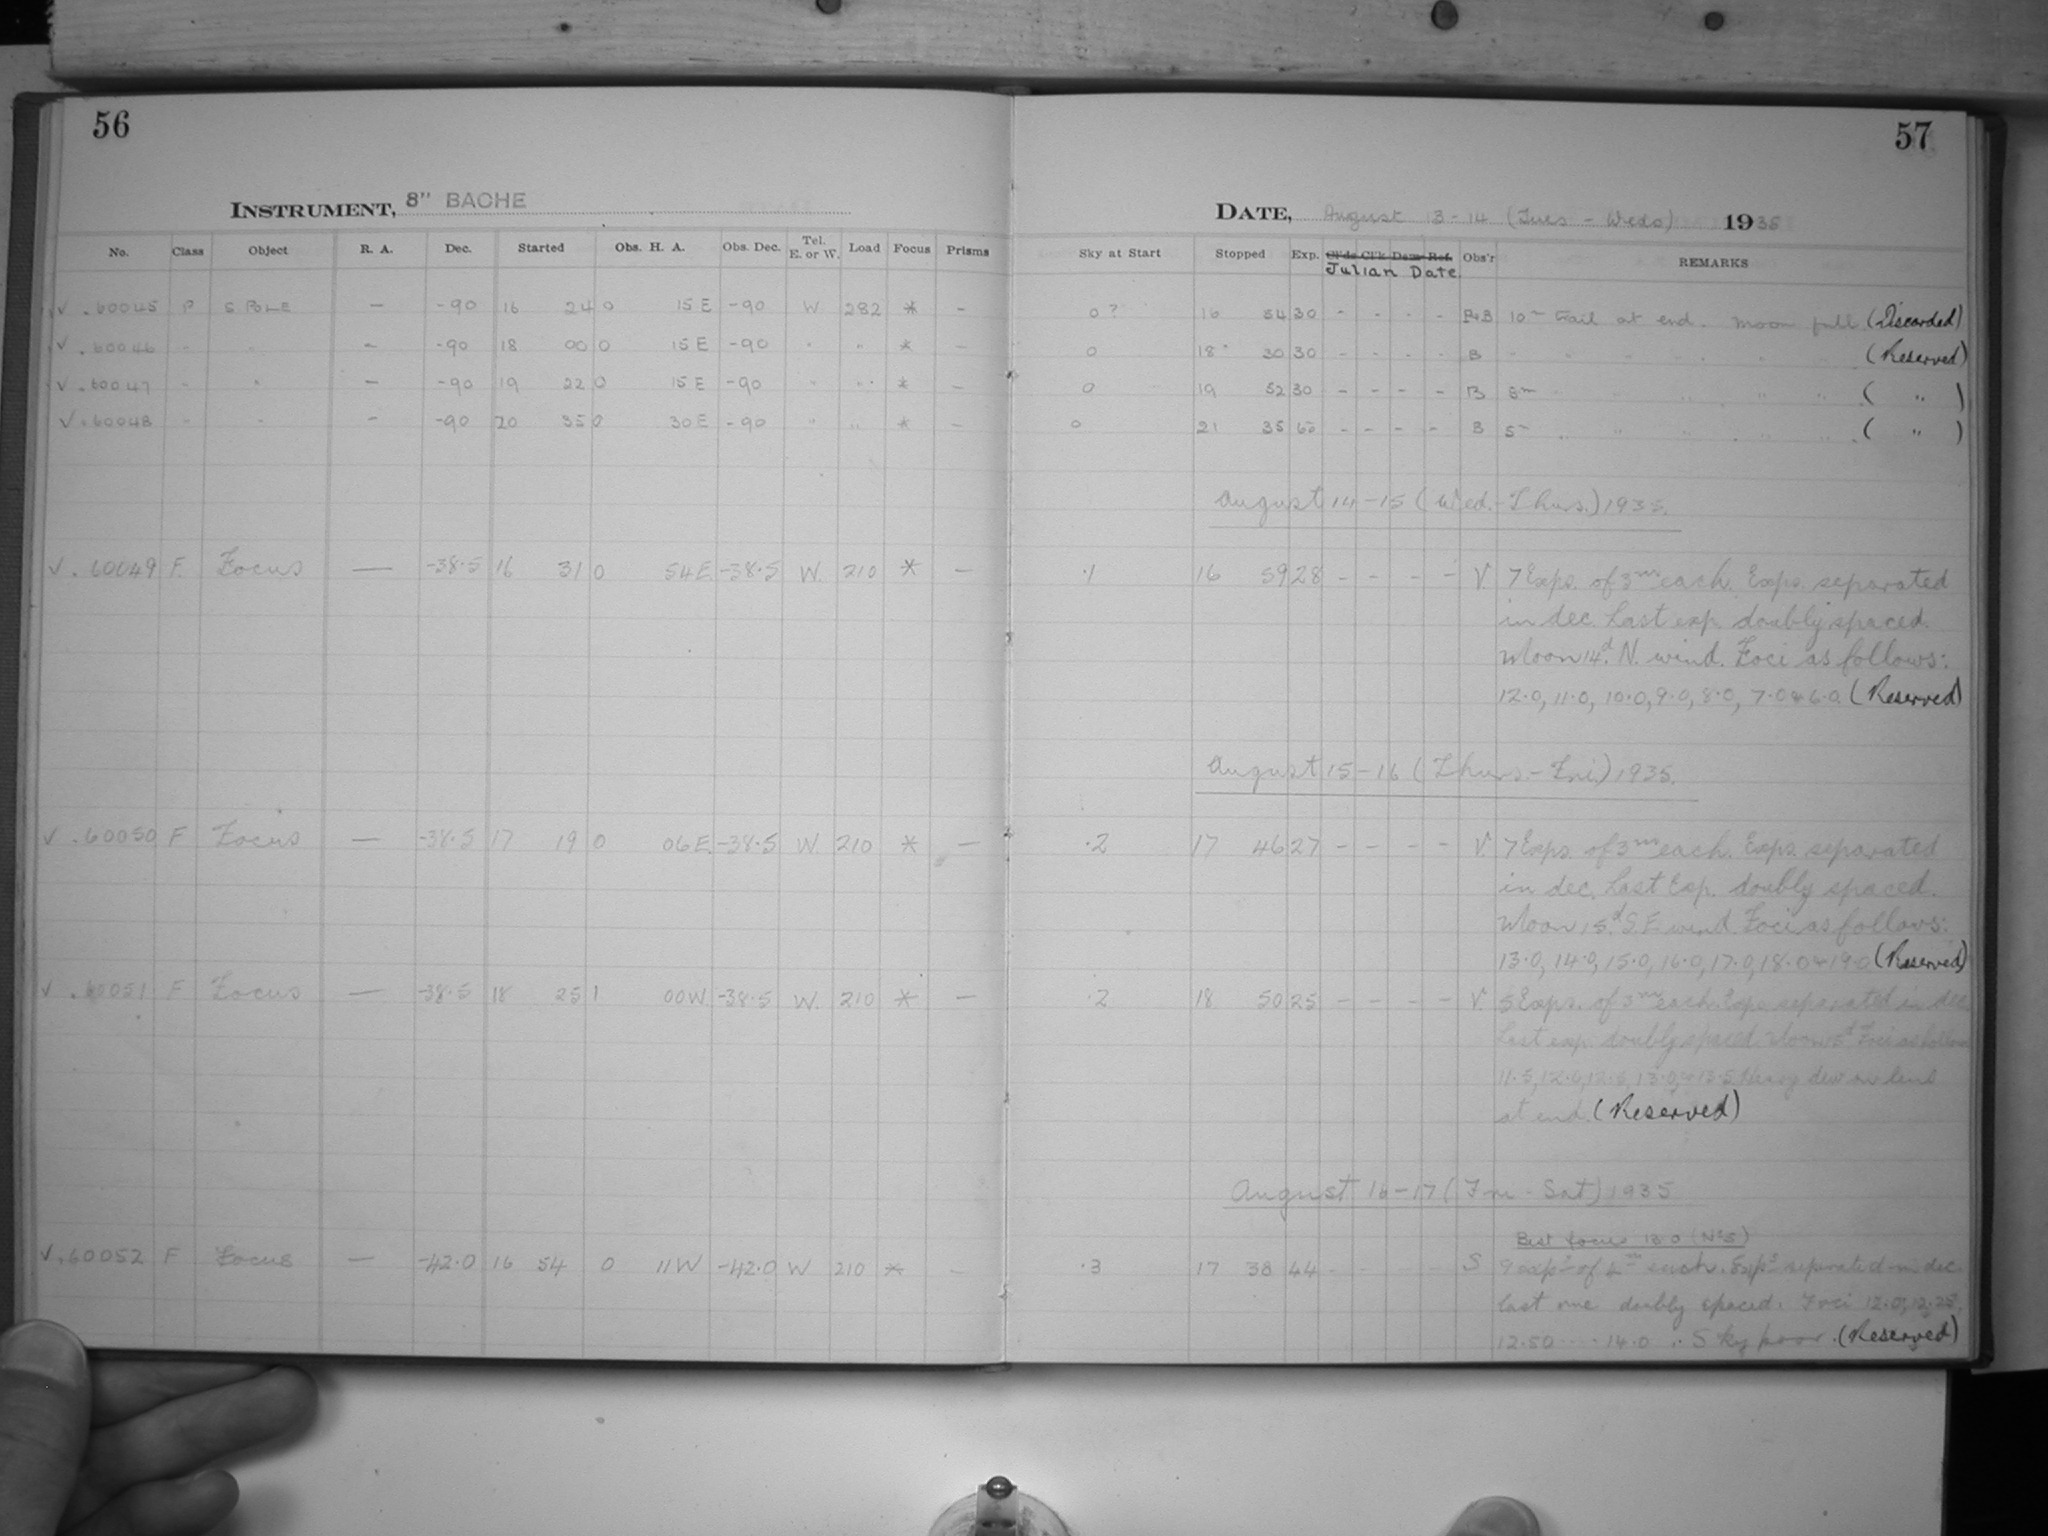 56
57
INSTRUMENT, 8" BACHE
DATE, August 13-14 (Tues - Weds) 1935
No. Class Object R. A. Dec. Started Obs. H. A. Obs. Dec. Tel. E. or W. Load Focus Prisms Sky at Start Stopped Exp. Cl'ds Cl'k Dam. Ref. Julian Date Obs'r REMARKS
√ .60045 P S POLE — -90 16 24 0 15 E -90 W 282 * — 0? 16 54 30 - - - - 10m trail at end. Moon full (Discarded)
√ .60046 " " — -90 18 00 0 15 E -90 " " * — 0 18 30 30 - - - - B " " " " " " (Reserved)
√ .60047 " " — -90 19 22 0 15 E -90 " " * — 0 19 52 30 - - - - B " " " " " ( " )
√ .60048 " " - -90 20 35 0 30 E -90 " " * — 0 21 35 60 - - - - B 5m " " " " " ( " )
August 14-15 (Wed.-Thurs.) 1935.
√ .60049 F. Focus — -38.5 16 31 0 54 E. -38.5 W. 210 * — .1 16 59 28 - - - - V. 7 Exps. of 3m each. Exps. separated
in dec. Last exp. doubly spaced.
Moon 14d. N. wind. Foci as follows:
12.0, 11.0, 10.0, 9.0, 8.0, 7.0 & 6.0. (Reserved)
August 15-16 (Thurs.-Fri.) 1935.
√ .60050 F Focus — -38.5 17 19 0 06 E. -38.5 W. 210 * — .2 17 46 27 - - - - V. 7 Exps. of 3m each. Exps. separated
in dec. Last Exp. doubly spaced.
Moon 15d. S.E. wind. Foci as follows:
13.0, 14.0, 15.0, 16.0, 17.0, 18.0 & 19.0 (Reserved)
√ .60051 F Focus — -38.5 18 25 1 00 W. -38.5 W. 210 * — .2 18 50 25 - - - - V. 5 Exps. of 3m each. Exps. separated in dec.
Last exp. doubly spaced. Moon 15d. Foci as follows
11.5, 12.0, 12.5, 13.0, & 13.5. Heavy dew on lens
at end. (Reserved)
August 16-17 (Fri - Sat) 1935
Best focus 13.0 (No 5)
√ .60052 F Focus — -42.0 16 54 0 11 W -42.0 W 210 * — .3 17 38 44 - - - - S 9 exps of 4m each. Exps separated in dec.
last one doubly spaced. Foci 12.0, 12.25,
12.50 ---- 14.0. Sky poor. (Reserved)